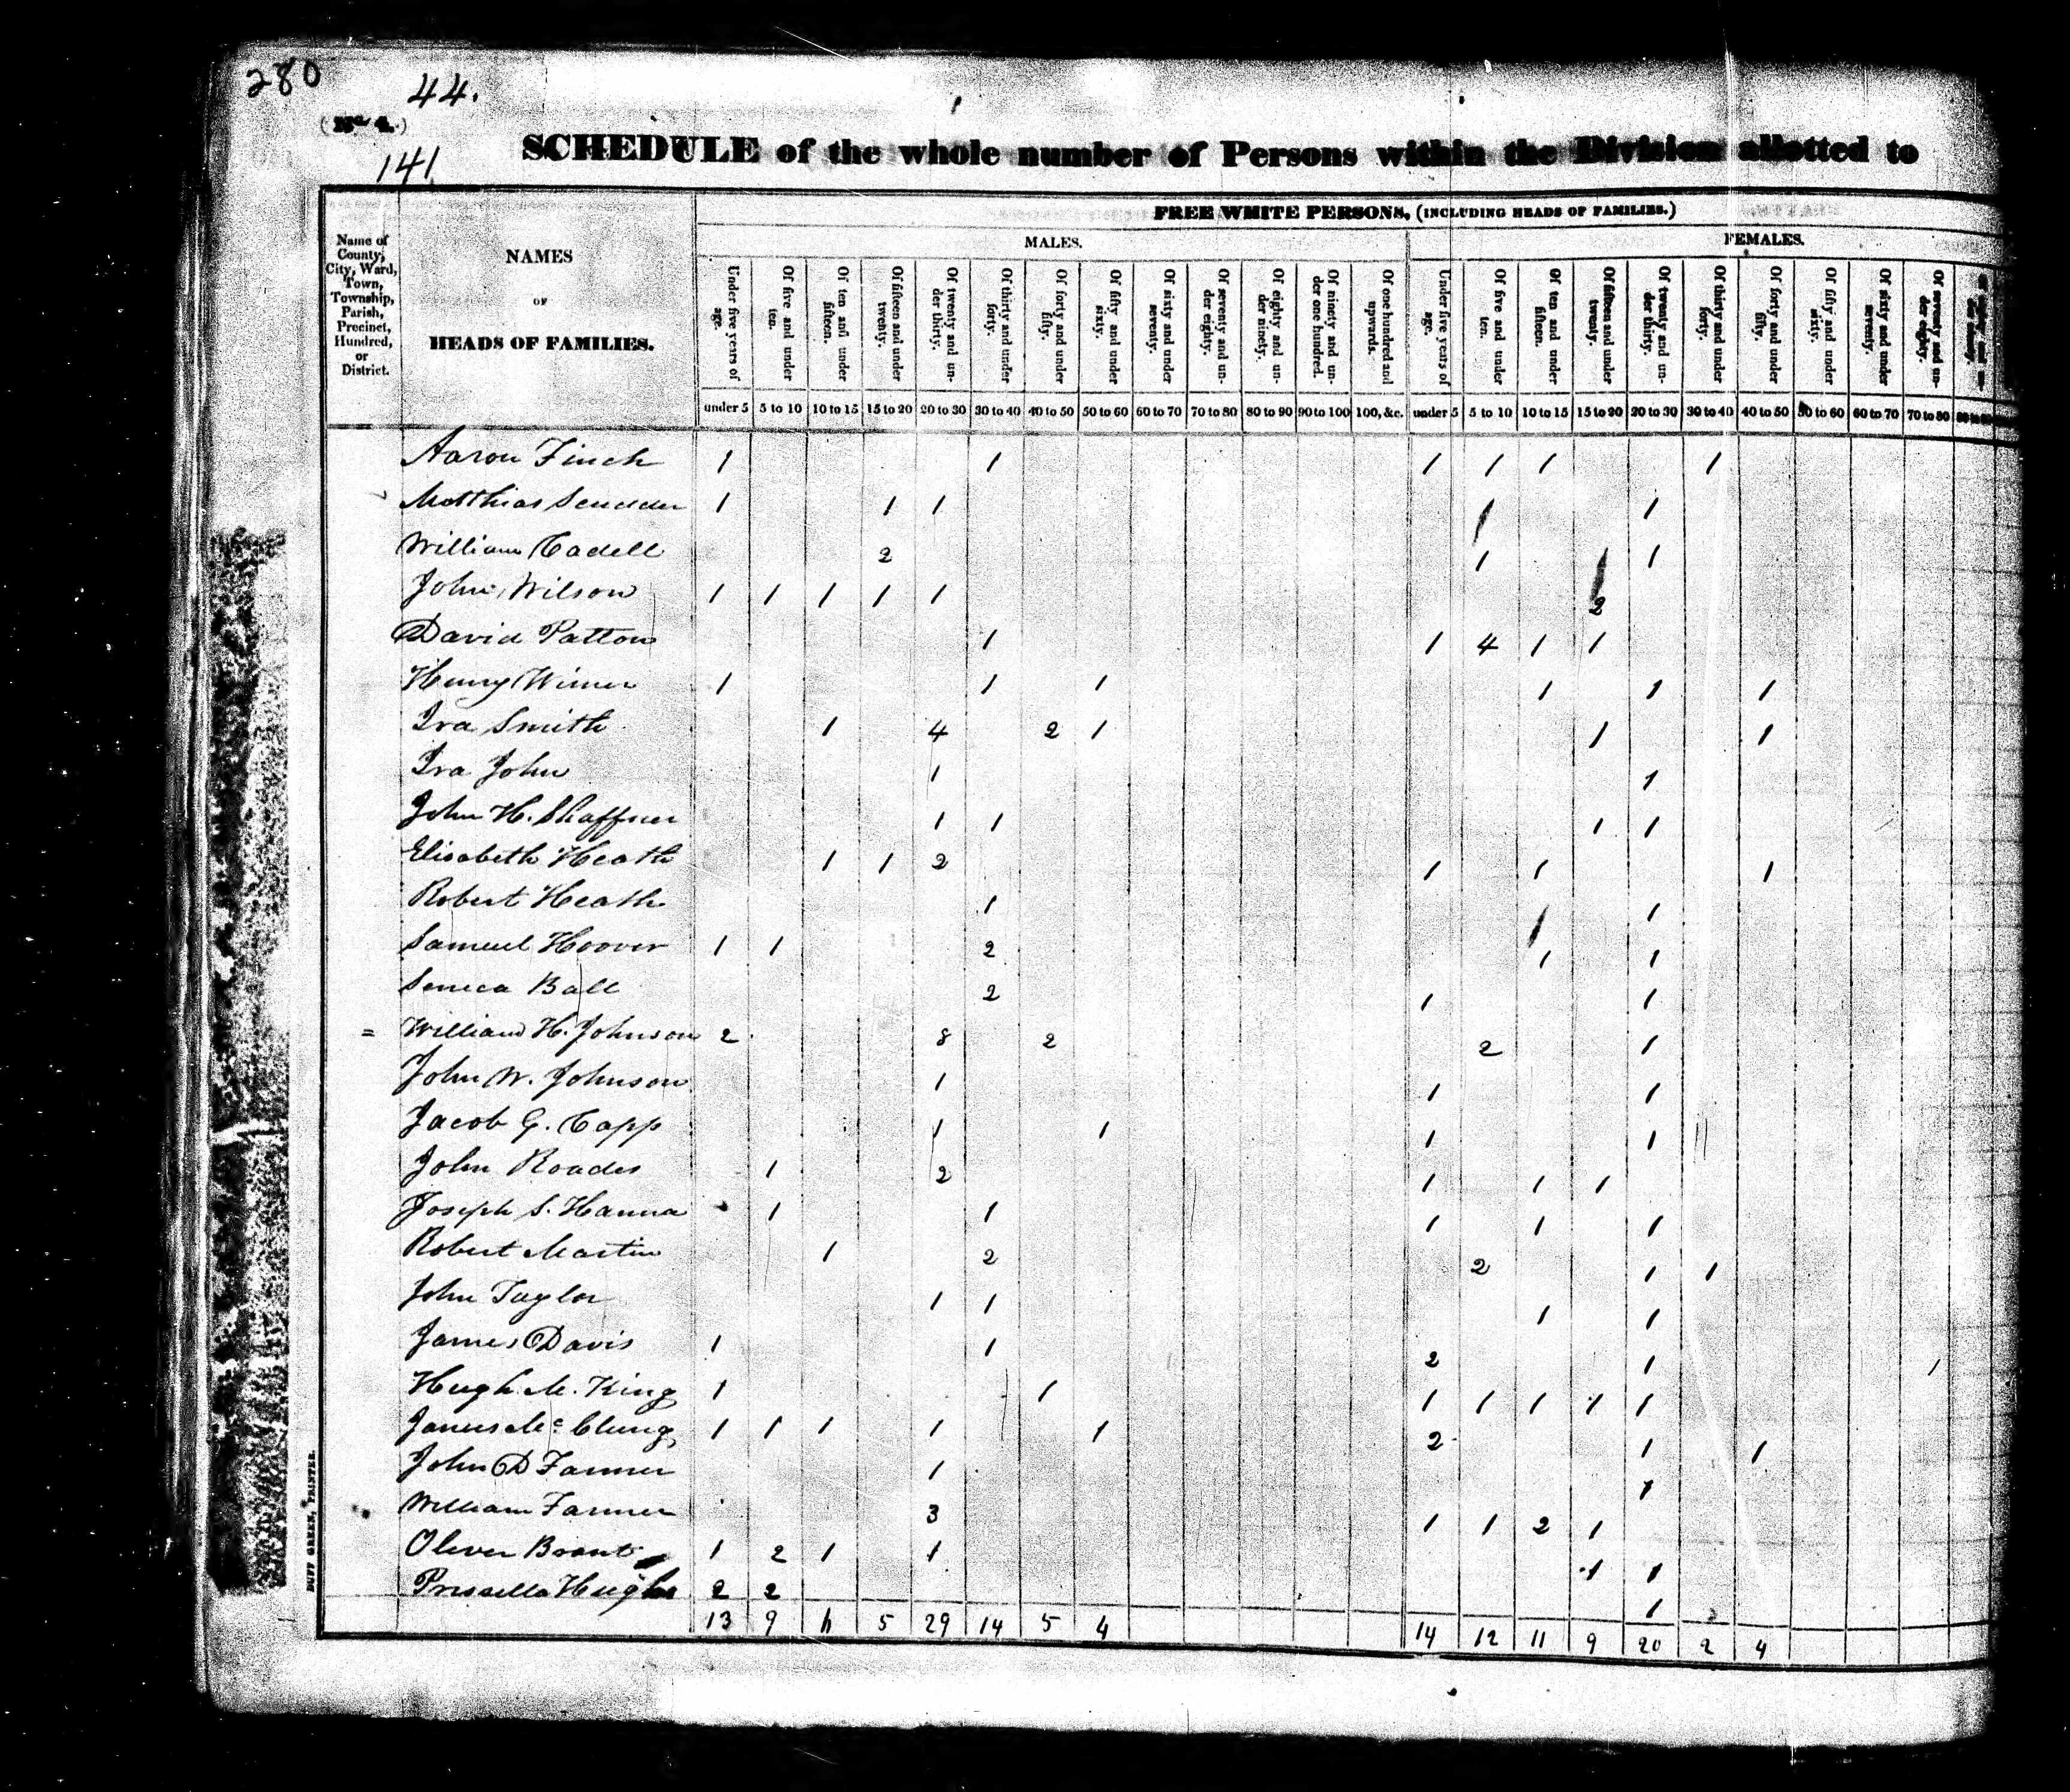 280
44.
(No 4.)
141
SCHEDULE of the whole number of Persons within the Division allotted to
FREE WHITE PERSONS, (INCLUDING HEADS OF FAMILIES.)
Name of County, City, Ward, Town, Township, Parish, Precinct, Hundred, or District.
NAMES OF HEADS OF FAMILIES.
MALES.
FEMALES.
Under five years of age. Of five and under ten. Of ten and under fifteen. Of fifteen and under twenty. Of twenty and under thirty. Of thirty and under forty. Of forty and under fifty. Of fifty and under sixty. Of sixty and under seventy. Of seventy and under eighty. Of eighty and under ninety. Of ninety and under one hundred. Of one hundred and upwards. Under five years of age. Of five and under ten. Of ten and under fifteen. Of fifteen and under twenty. Of twenty and under thirty. Of thirty and under forty. Of forty and under fifty. Of fifty and under sixty. Of sixty and under seventy. Of seventy and under eighty.
under 5 5 to 10 10 to 15 15 to 20 20 to 30 30 to 40 40 to 50 50 to 60 60 to 70 70 to 80 80 to 90 90 to 100 100, &c. under 5 5 to 10 10 to 15 15 to 20 20 to 30 30 to 40 40 to 50 50 to 60 60 to 70 70 to 80
Aaron Finch 1 1 1 1 1 1
Matthias Scudder 1 1 1 1 1
William Cadell 2 1 1 1
John Wilson 1 1 1 1 1 2
David Patton 1 1 4 1 1
Henry Wimer 1 1 1 1 1 1
Ira Smith 1 4 2 1 1 1
Ira John 1 1
John H. Shaffner 1 1 1 1
Elisabeth Heath 1 1 2 1 1 1
Robert Heath 1 1 1
Samuel Hoover 1 1 2 1 1
Seneca Ball 2 1 1
= William H. Johnson 2 8 2 2 1
John W. Johnson 1 1 1
Jacob G. Capp 1 1 1 1
John Roades 1 2 1 1 1
Joseph S. Hanna 1 1 1 1 1
Robert Martin 1 2 2 1 1
John Taylor 1 1 1 1
James Davis 1 1 2 1
Hugh M. King 1 1 1 1 1 1 1
James Mc Clung 1 1 1 1 1 2 1 1
John D Farmer 1 1
William Farmer 3 1 1 2 1
Oliver Brant 1 2 1 1 1 1
Prissella Hughs 2 2 1
13 9 5 29 14 5 4 14 12 11 9 20 2 4
DUFF GREEN, PRINTER.